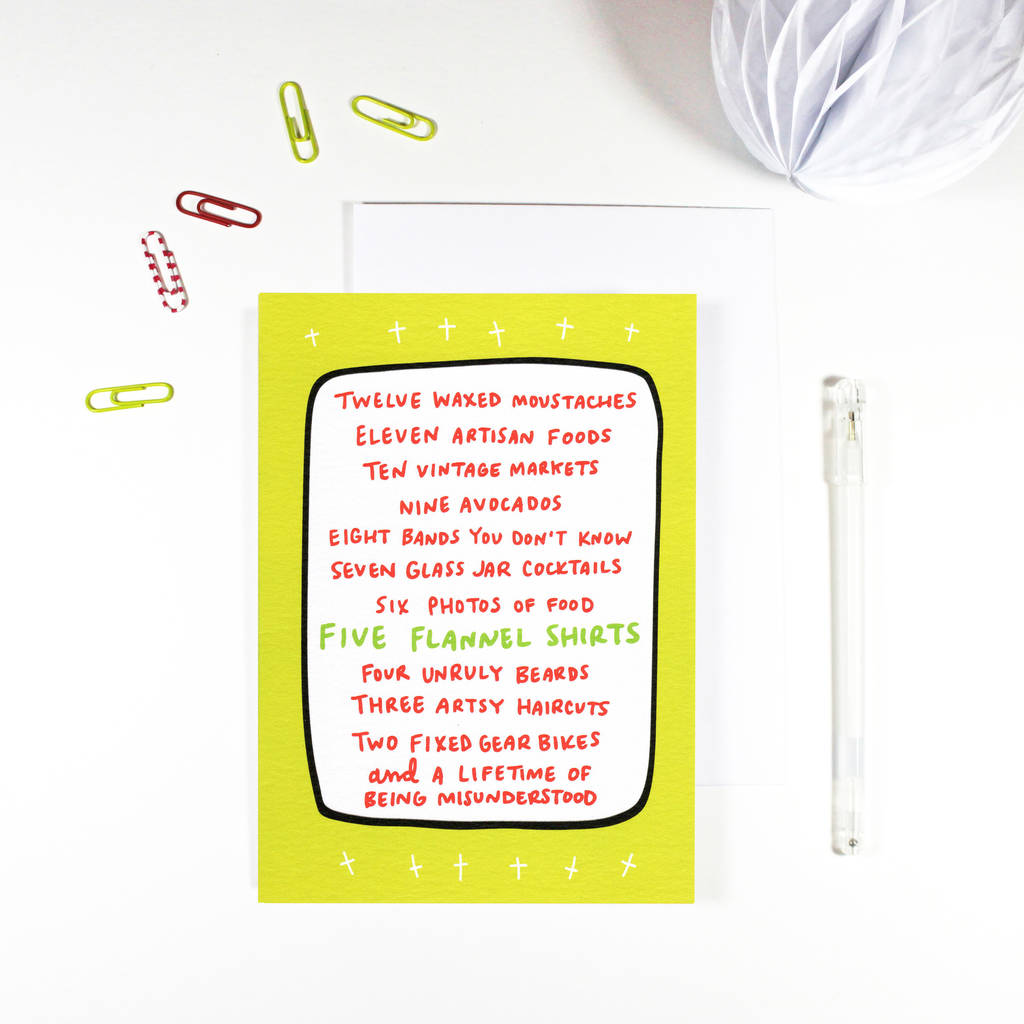 TWELVE WAXED MOUSTACHES
ELEVEN ARTISAN FOODS
TEN VINTAGE MARKETS
NINE AVOCADOS
EIGHT BANDS YOU DON'T KNOW
SEVEN GLASS JAR COCKTAILS
SIX PHOTOS OF FOOD
FIVE FLANNEL SHIRTS
FOUR UNRULY BEARDS
THREE ARTSY HAIRCUTS
TWO FIXED GEAR BIKES
and A LIFETIME OF
BEING MISUNDERSTOOD